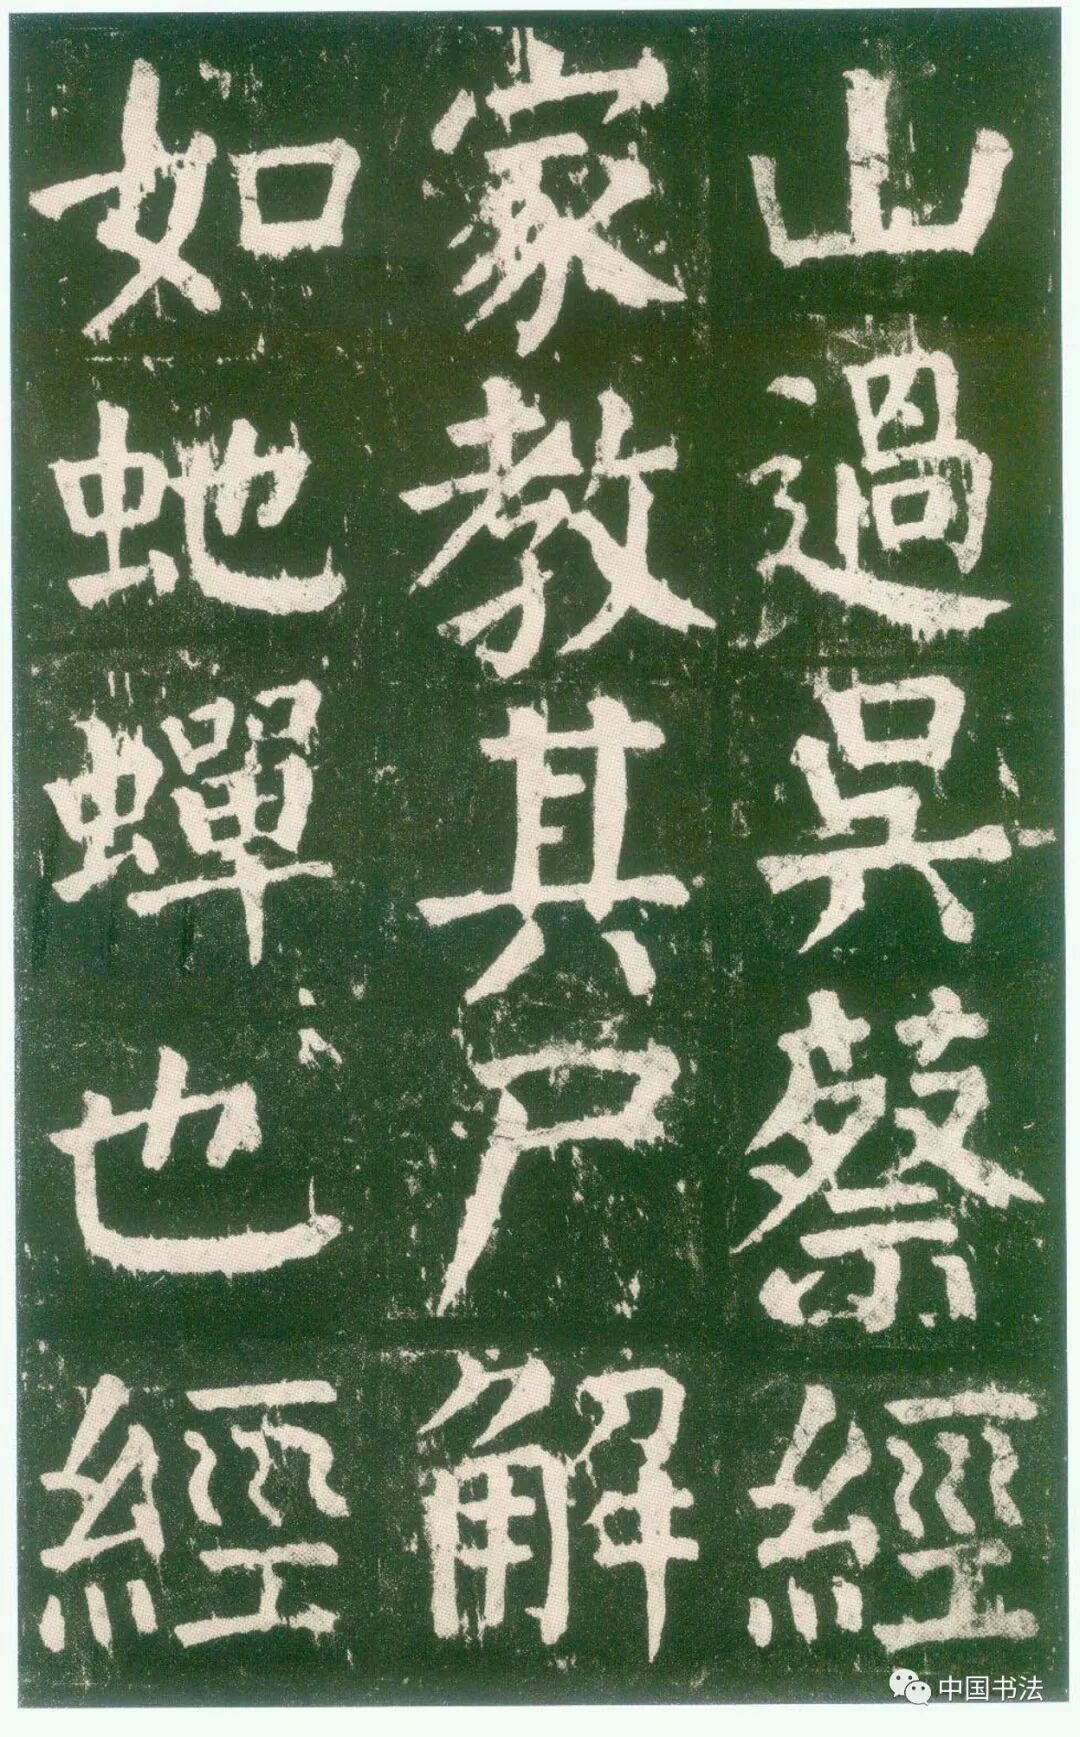 山過吳蔡經
家教其尸解
如虵蟬也經
中国书法